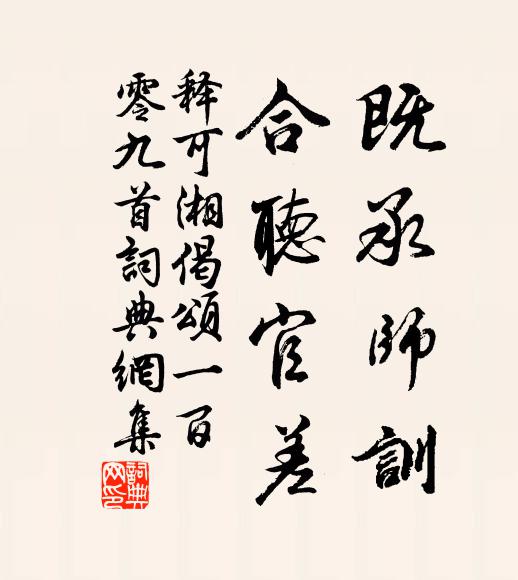 既承師訓
合聽官差
释可湘偈頌一百
零九首詞典網集
詞典网印